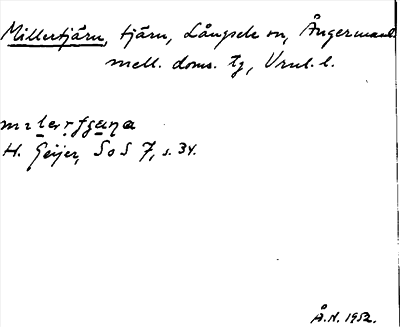 Millertjärn, tjärn, Långsele sn, Ångermanl.
mell. doms. Tg,
H. Geijer, SoS 7, s. 34.
Å.N. 1952.